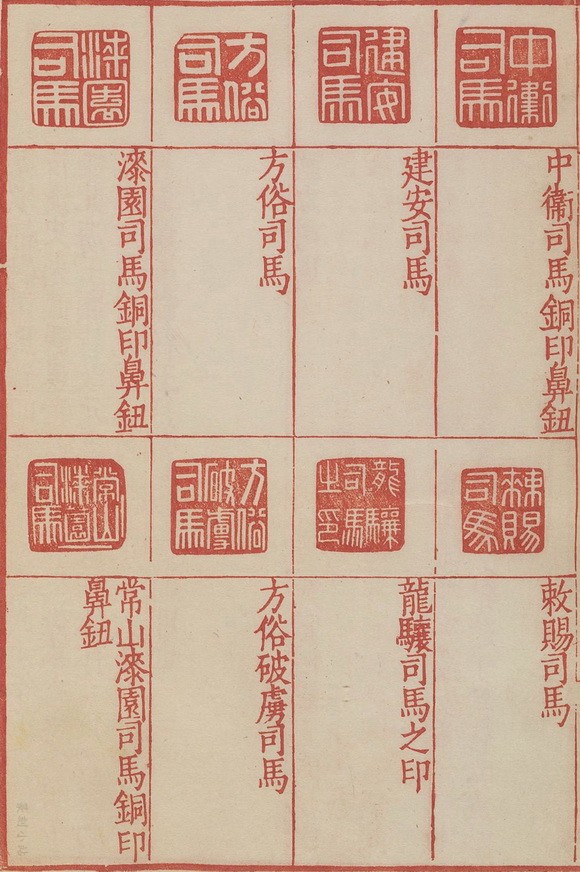 中衞司馬
建安司馬
方俗司馬
漆園司馬
中衞司馬銅印鼻鈕
建安司馬
方俗司馬
漆園司馬銅印鼻鈕
敕賜司馬
龍驤司馬之印
方俗破虜司馬
常山漆園司馬
敕賜司馬
龍驤司馬之印
方俗破虜司馬
常山漆園司馬銅印
鼻鈕